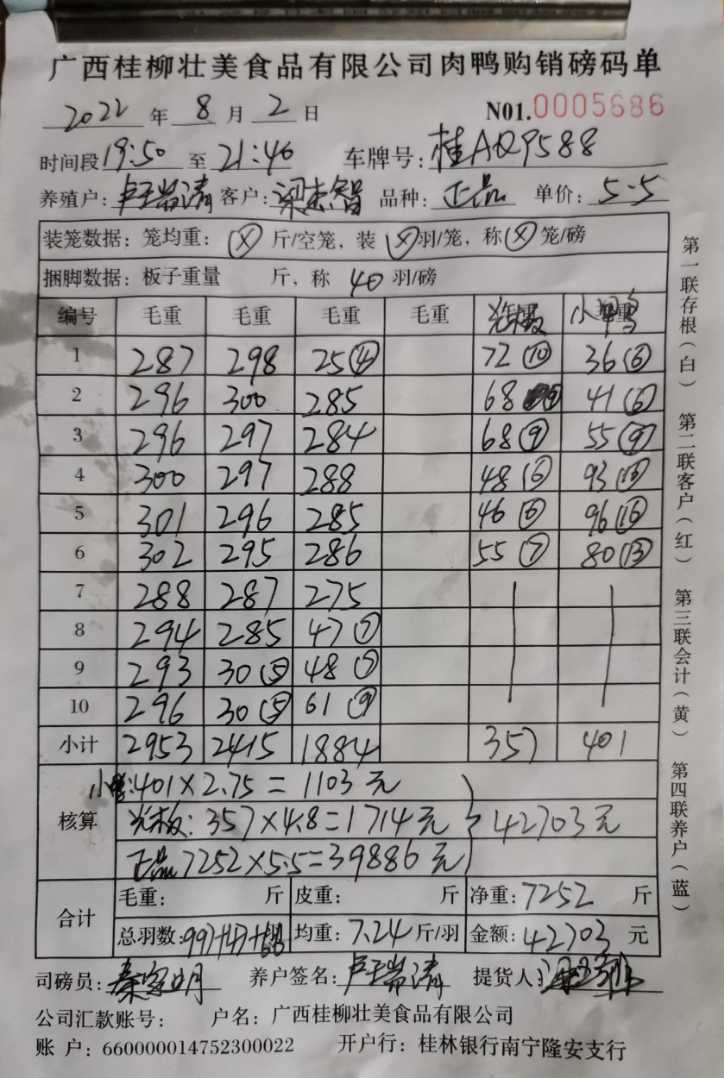 广西桂柳壮美食品有限公司肉鸭购销磅码单
2022 年 8 月 2 日 N01.0005686
时间段 19:50 至 21:46 车牌号: 桂AQ9588
养殖户: 客户: 梁杰智 品种: 正品 单价: 5.5
装笼数据: 笼均重: (X) 斤/空笼, 装 (X) 羽/笼, 称 (X) 笼/磅
捆脚数据: 板子重量 斤, 称 40 羽/磅
编号 毛重 毛重 毛重 毛重 光板 小鸭
1 287 298 25④ 72⑩ 36⑥
2 296 300 285 68 41⑥
3 296 297 284 68⑨ 55⑨
4 300 297 288 48⑥ 93
5 301 296 285 46⑥ 96⑯
6 302 295 286 55⑦ 80⑬
7 288 287 275
8 294 285 47⑦
9 293 30⑤ 48⑦
10 296 30⑤ 61⑨
小计 2953 2415 1884 357 401
核算
小鸭:401×2.75=1103元
光板:357×4.8=1714元 } 42703元
正品7252×5.5=39886元
合计
毛重: 斤 皮重: 斤 净重: 7252 斤
总羽数: 均重: 7.24 斤/羽 金额: 42703 元
司磅员: 养户签名: 提货人:
公司汇款账号: 户名: 广西桂柳壮美食品有限公司
账 户: 660000014752300022 开户行: 桂林银行南宁隆安支行
第一联存根(白) 第二联客户(红) 第三联会计(黄) 第四联养户(蓝)